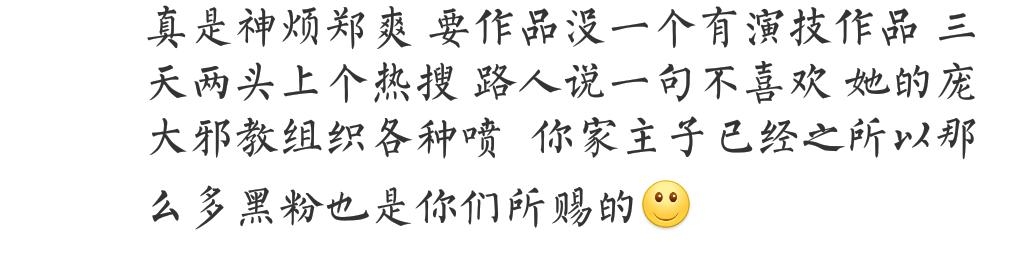 真是神烦郑爽 要作品没一个有演技作品 三
天两头上个热搜 路人说一句不喜欢 她的庞
大邪教组织各种喷 你家主子已经之所以那
么多黑粉也是你们所赐的